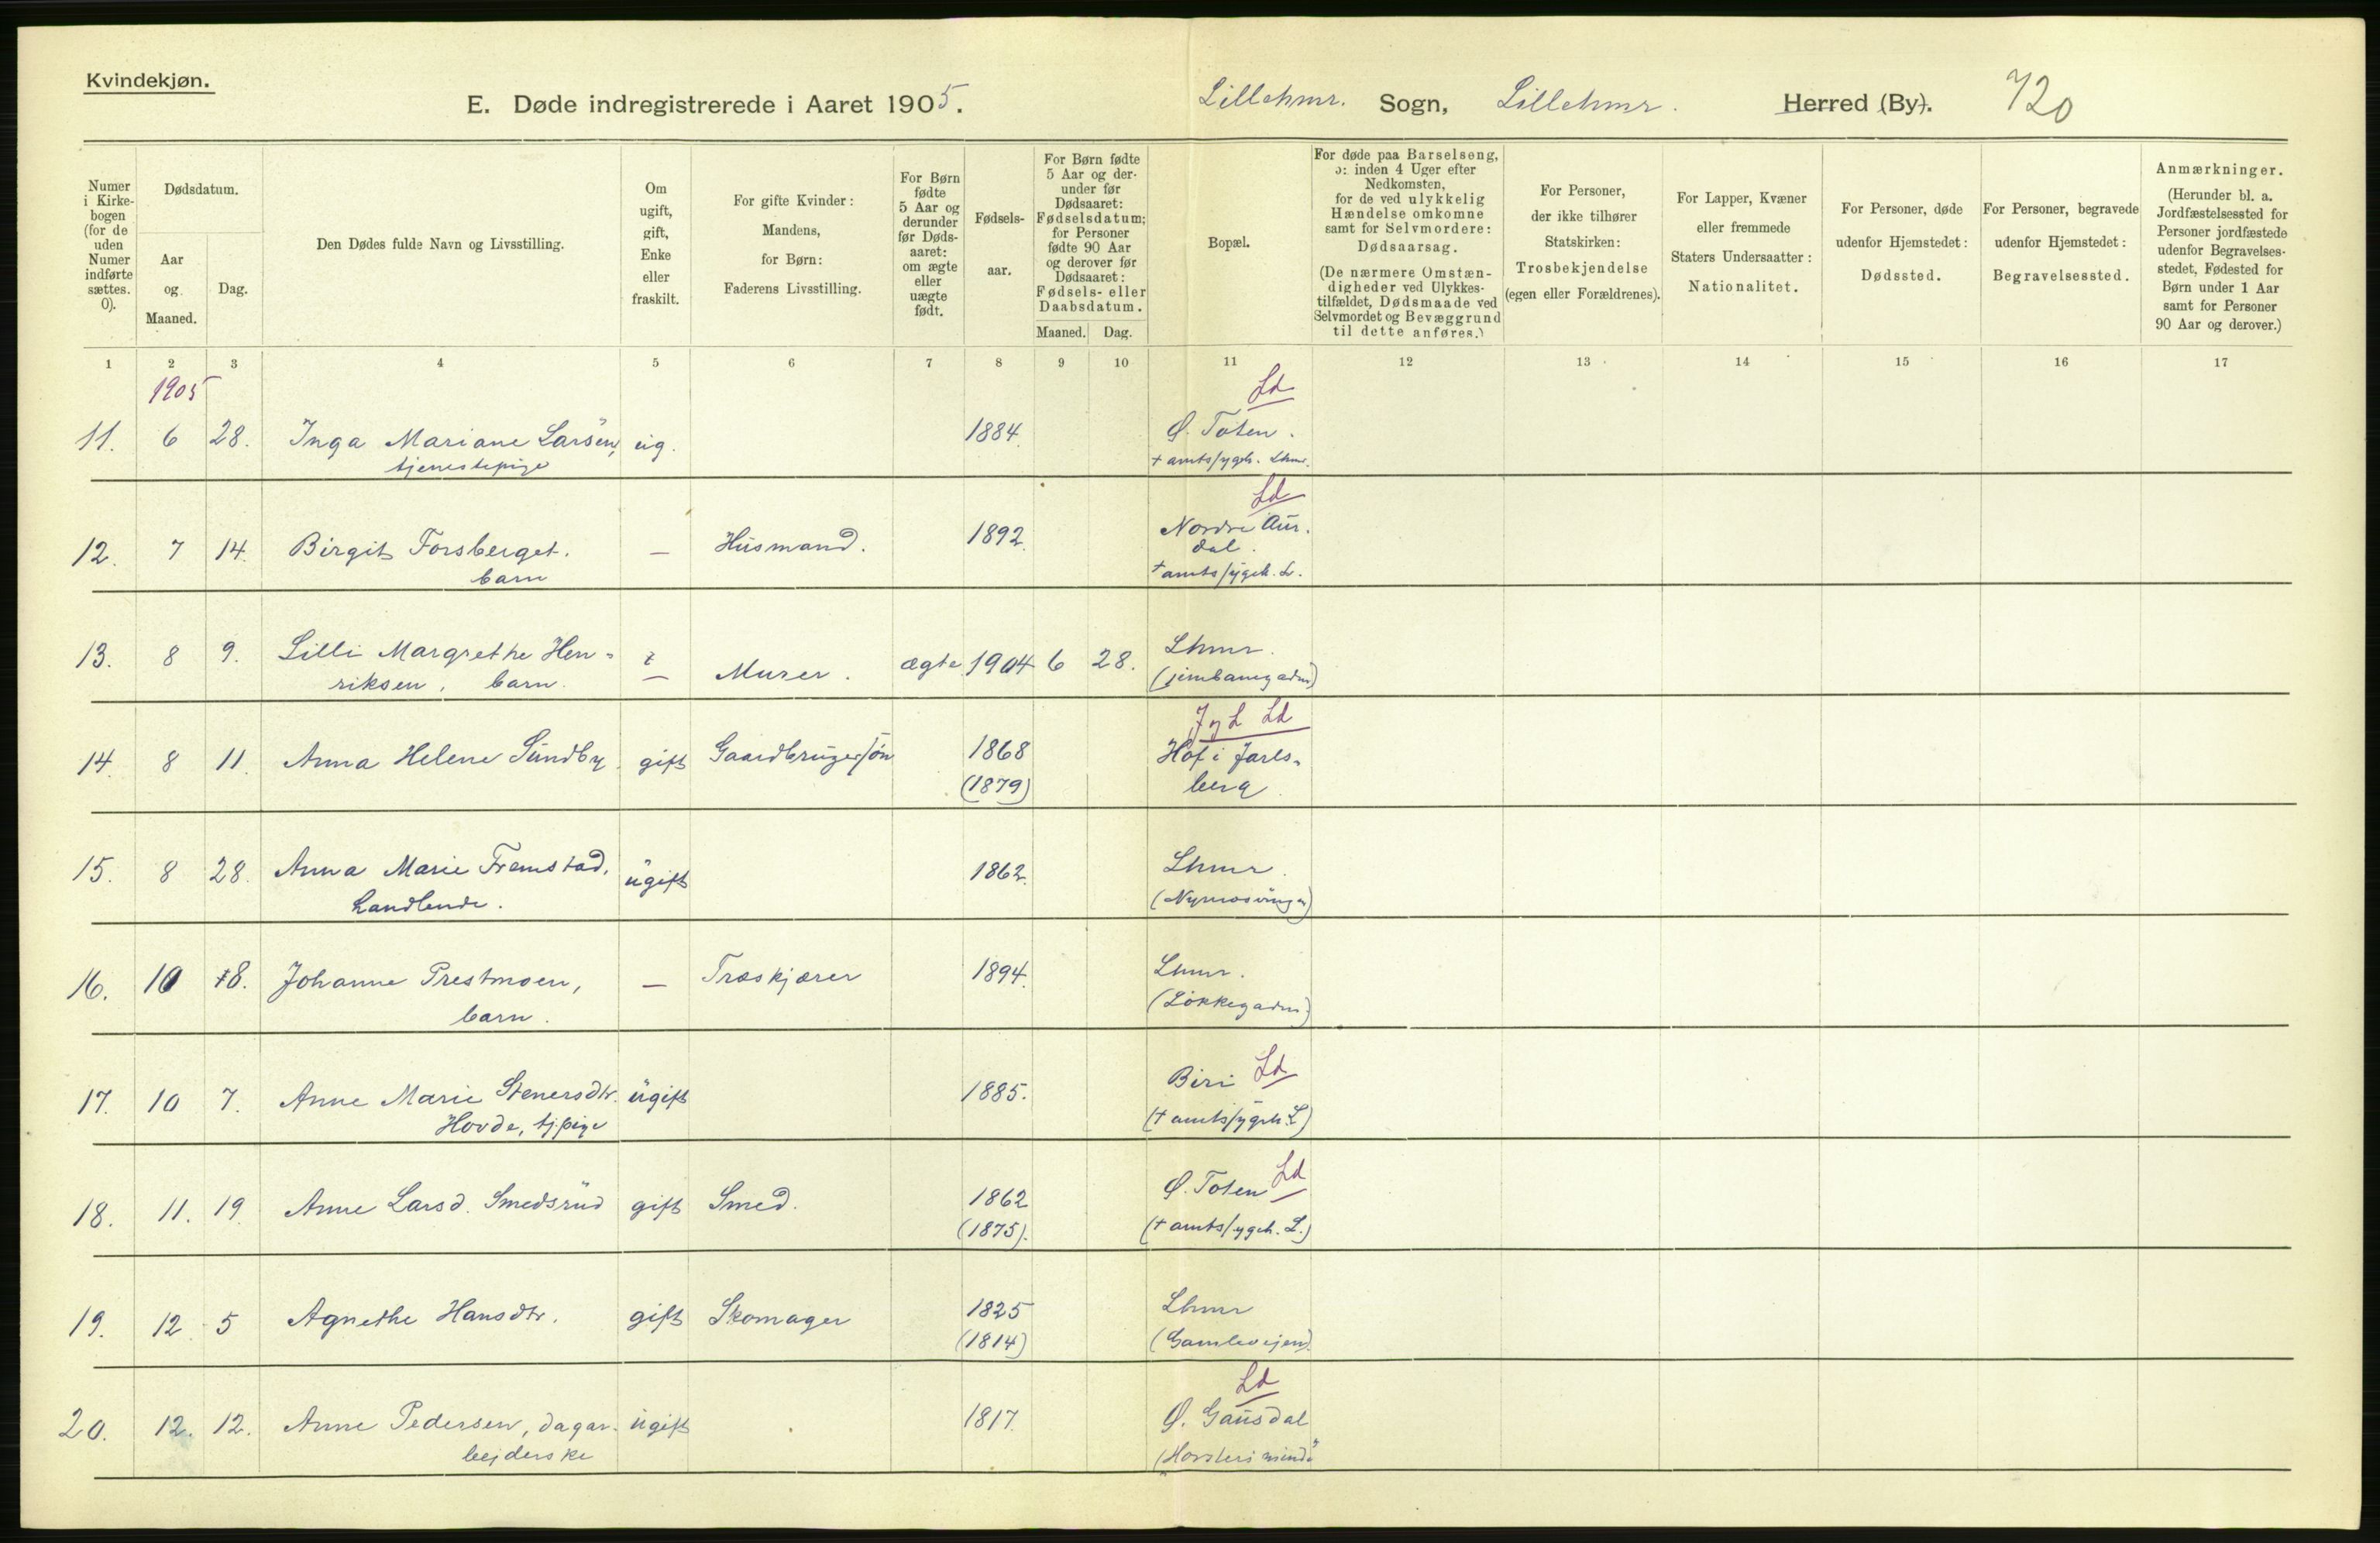 Kvindekjøn.
E. Døde indregistrerede i Aaret 1905. Lillehmr. Sogn, Lillehmr. Herred (By). 720
Numer i Kirke-bogen (for de uden Numer indførte sættes. 0).
Dødsdatum.
Aar og Maaned.
Dag.
Den Dødes fulde Navn og Livsstilling.
Om ugift, gift, Enke eller fraskilt.
For gifte Kvinder: Mandens, for Børn: Faderens Livsstilling.
For Børn fødte 5 Aar og derunder før Døds-aaret: om ægte eller uægte født.
Fødsels-aar.
For Børn fødte 5 Aar og der-under før Dødsaaret: Fødselsdatum; for Personer fødte 90 Aar og derover før Dødsaaret: Fødsels- eller Daabsdatum.
Maaned. Dag.
Bopæl.
For døde paa Barselseng, ɔ: inden 4 Uger efter Nedkomsten, for de ved ulykkelig Hændelse omkomne samt for Selvmordere: Dødsaarsag.
(De nærmere Omstæn-digheder ved Ulykkes-tilfældet, Dødsmaade ved Selvmordet og Bevæggrund til dette anføres.)
For Personer, der ikke tilhører Statskirken: Trosbekjendelse (egen eller Forældrenes).
For Lapper, Kvæner eller fremmede Staters Undersaatter: Nationalitet.
For Personer, døde udenfor Hjemstedet: Dødssted.
For Personer, begravede udenfor Hjemstedet: Begravelsessted.
Anmærkninger.
(Herunder bl. a. Jordfæstelsessted for Personer jordfæstede udenfor Begravelses-stedet, Fødested for Børn under 1 Aar samt for Personer 90 Aar og derover.)
1 2 3 4 5 6 7 8 9 10 11 12 13 14 15 16 17
1905 Ld
11. 6 28. Inga Mariane Larsen, ug. 1884. Ø. Toten.
tjenestepige + amtssygeh. Lhmr.
Ld
12. 7 14. Birgit Forsberget. — Husmand. 1892. Nordre Aur-
dal.
barn + amtssygeh. L.
13. 8 9. Lilli Margrethe Hen- — Murer. ægte 1904 6 28. Lhmr.
riksen, barn. (jernbanegaden)
Ld
14. 8 11. Anna Helene Sundby gift Gaardbrugersøn 1868 Hof i Jarls-
(1879) berg.
15. 8 28. Anna Marie Fremstad, ugift 1862. Lhmr.
handlende. (Nymosvingen)
16. 10 8. Johanne Prestmoen, — Træskjærer 1894. Lhmr.
barn. (Løkkegaden)
17. 10 7. Anne Marie Stenersdtr. ugift 1885. Biri Ld
Hovde, tj.pige (+ amtssygeh. L)
18. 11. 19. Anne Larsd. Smedsrud gift Smed. 1862 Ø. Toten Ld
(1875). (+ amtssygeh. L.)
19. 12 5 Agnethe Hansdtr. gift Skomager 1825 Lhmr
(1814) (Gamleveien).
Ld
20. 12. 12. Anne Pedersen, dagar- ugift 1817. Ø. Gausdal
bejderske